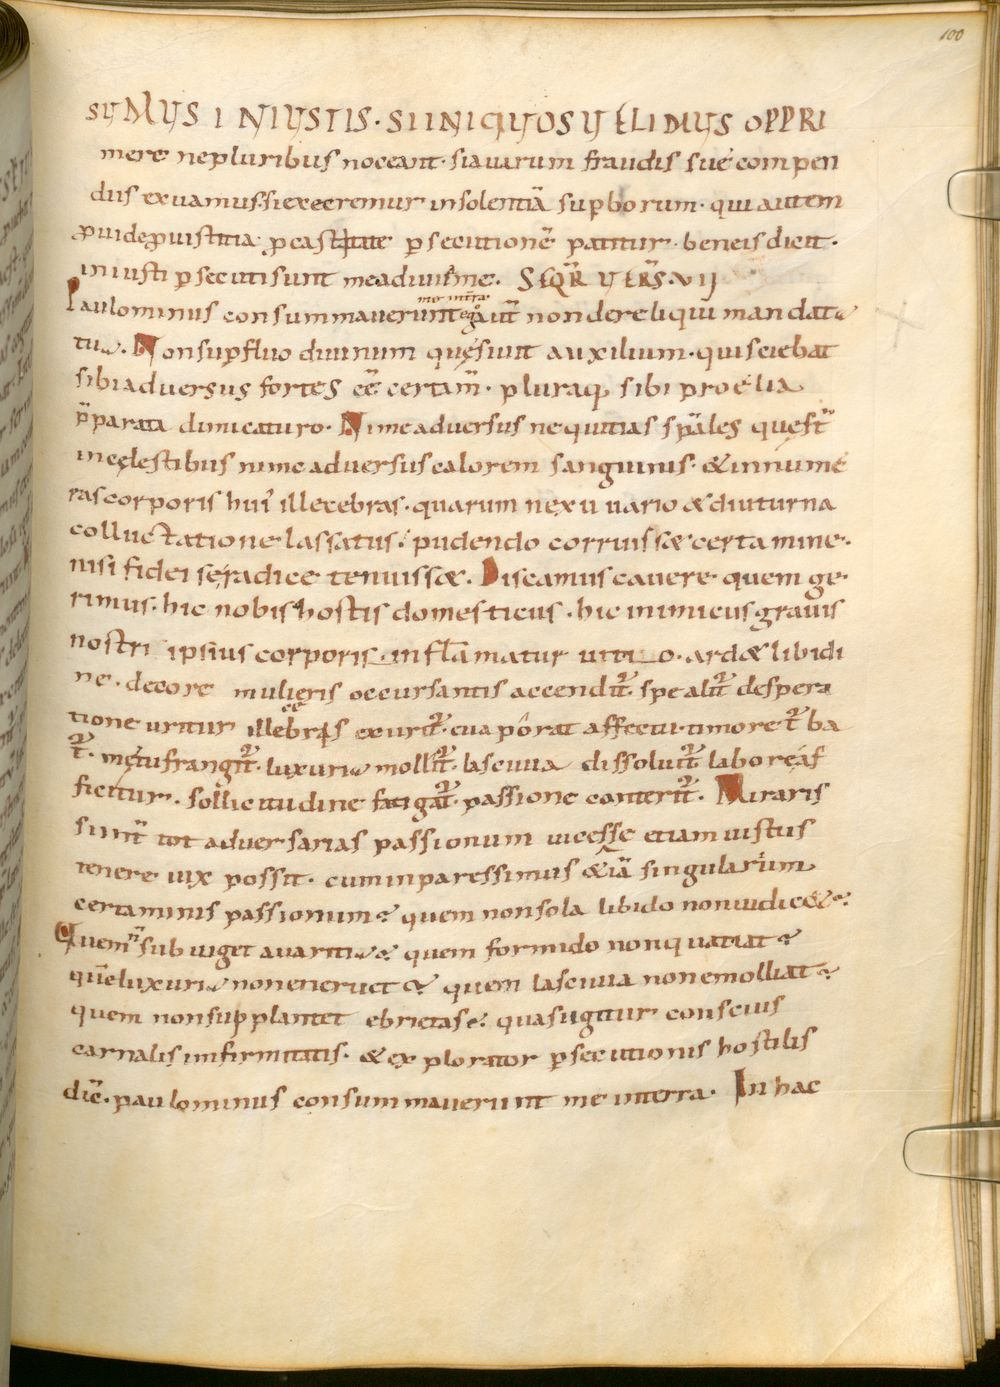 100
SUMUS INIUSTIS · SI INIQUOS UELIMUS OPPRI
mere ne pluribus noceant · si auarum fraudis suę compen
diis exuamus · si execremur insolentiā suꝑborum · qui autem
ꝓ uide ꝓ iustitia ꝓ castitate ꝑsecutionē patitur · bene is dicit ·
iniusti ꝑsecuti sunt me adiuua me · SEQR̄ UERS̄ · VII
me in t̄ra ·
Paulominus consummauerunt ego aut̄ non dereliqui mandata
tua · Non suꝑfluo diuinum quęsiuit auxilium · qui sciebat
sibi aduersus fortes eē certam̄ · pluraq; sibi proelia
p̄parata dimicaturo · Nime aduersus nequitias sp̄ales quę st̄
in cęlestibus nime aduersus calorem sanguinis · & innume
ras corporis hui' illecebras · quarum nexu uario & diuturna
colluctatione lassatus · pudendo corruiss& certamine ·
nisi fidei se radice tenuiss& · Discamus cauere quem ge
rimus · hic nobis hostis domesticus · hic inimicus grauis
nostri ipsius corporis · inflāmatur uitio · ard& libidi
ne · decore mulieris occursantis accendit̄ · spe alit̄ despera
tione uritur illecebris exurit̄ · euaporat affectu · timore t̄ba
t̄ · metu frangit̄ · luxuria mollit̄ · lasciuia dissoluit̄ labore af
ficitur · sollicitudine fatigat̄ · passione conterit̄ · Miraris
si int̄ tot aduersarias passionum uicesse etiam iustus
tenere uix possit · cum inpares simus &iā singularium
certaminis passionum? quem non sola libido non uidic&?
Quem n̄ subiuget auaritia? quem formido non quatiat?
quē luxuria non eneruet? quem lasciuia non emolliat?
quem non supplantet ebrietas? quas igitur conscius
carnalis infirmitatis · & explorator ꝑsecutionis hostilis
dic̄ · paulominus consummauerunt me in terra · In hac